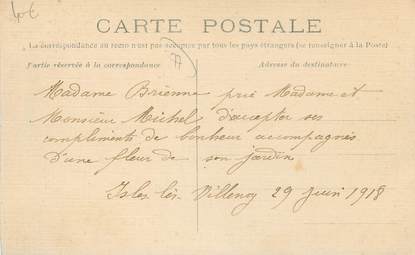 4€
CARTE POSTALE
La correspondance au recto n'est pas acceptée par tous les pays étrangers (se renseigner à la Poste)
77
Partie réservée à la correspondance
Adresse du destinataire
Madame Brienne prie Madame et
Monsieur Michel d'accepter ses
compliments de bonheur accompagnés
d'une fleur de son jardin
Isles les Villenoy 29 Juin 1918